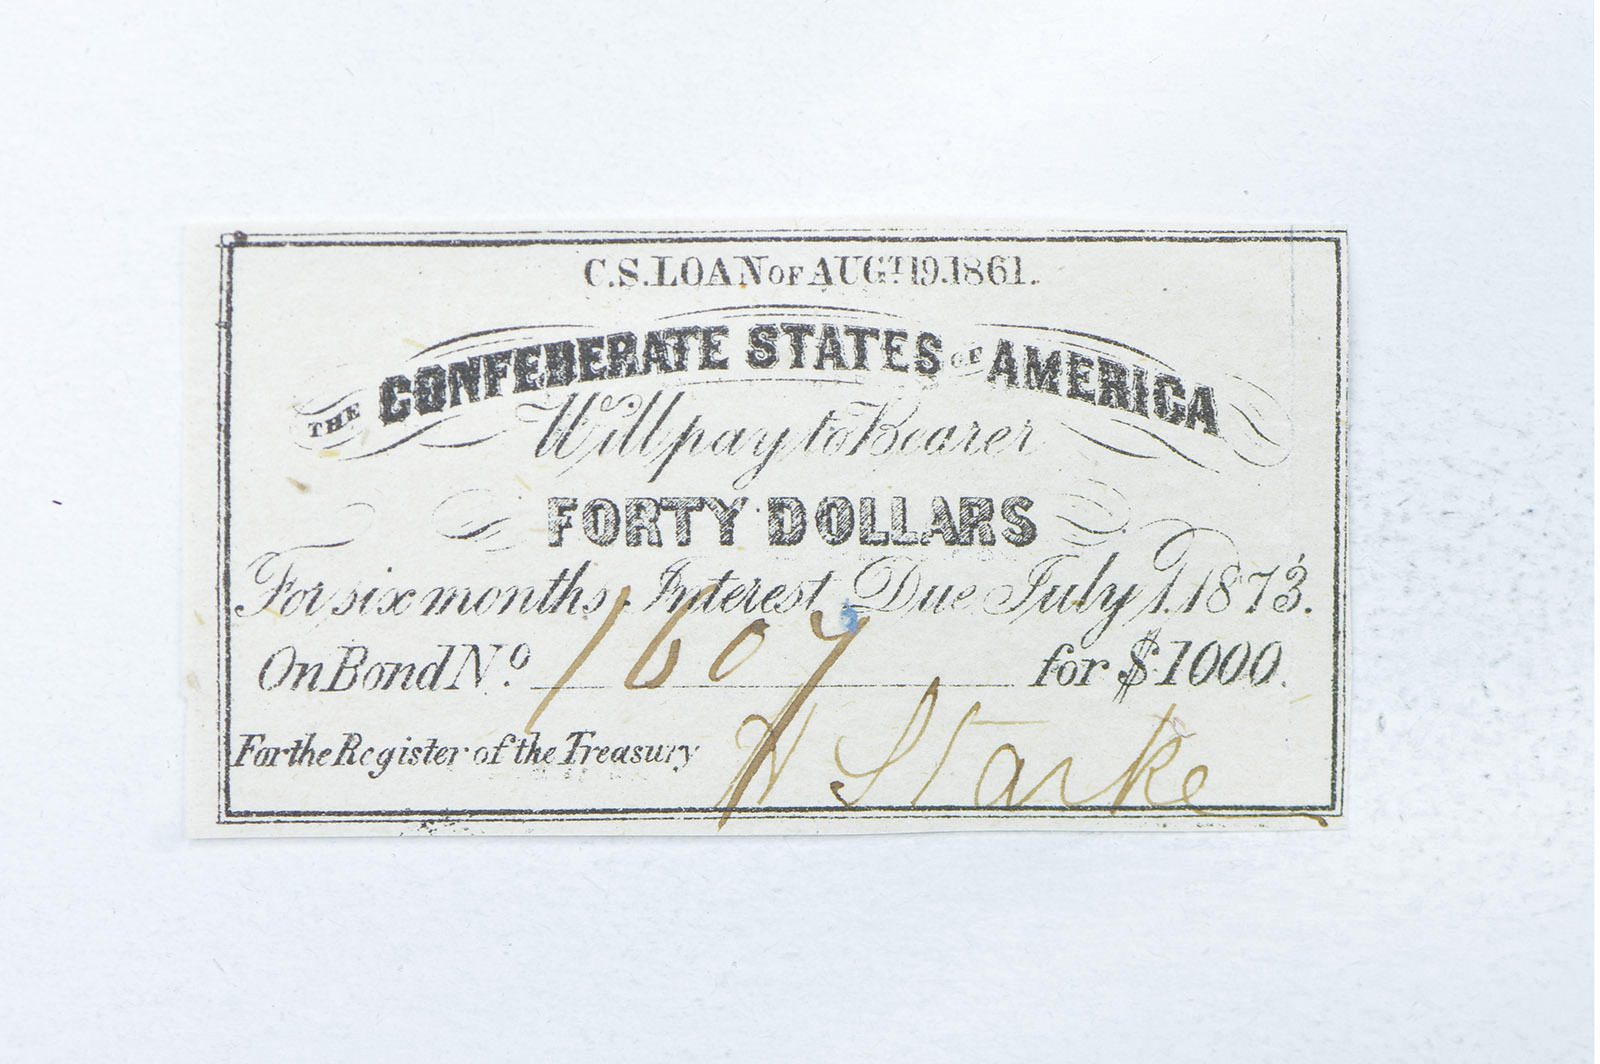 C.S. LOAN OF AUGT 19. 1861.
THE CONFEDERATE STATES OF AMERICA
Will pay to Bearer
FORTY DOLLARS
For six months Interest Due July 1. 1873.
On Bond No. 1607 for $1000.
For the Register of the Treasury H Starke